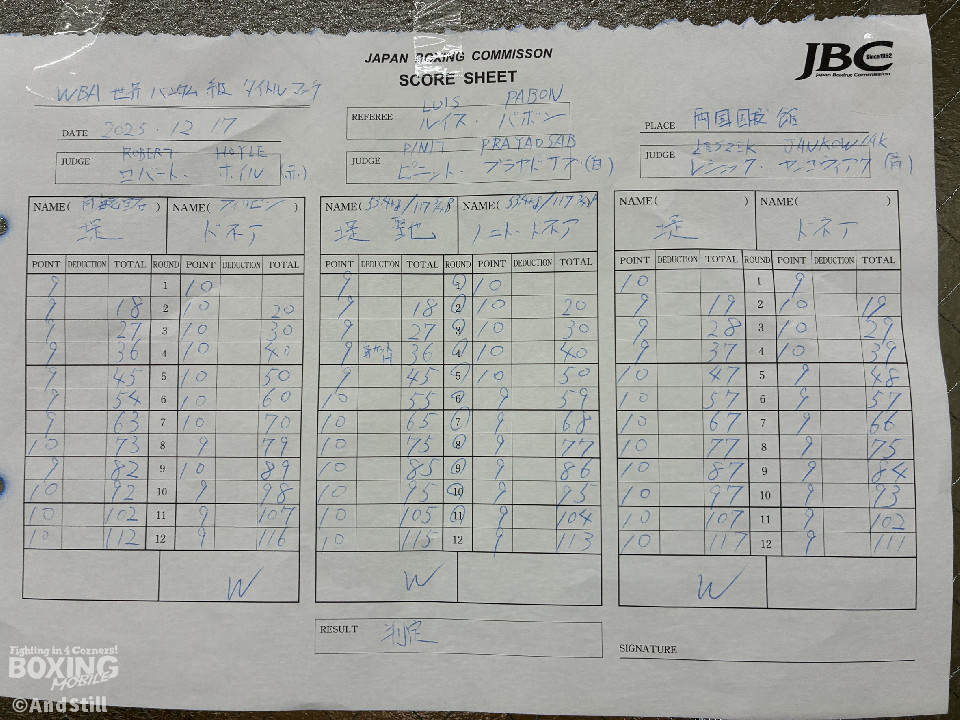 JAPAN BOXING COMMISSON
SCORE SHEET
JBC Since1952
Japan Boxing Commission
WBA 世界 バンタム級 タイトルマッチ
DATE 2025.12.17
REFEREE LUIS PABON
ルイス・パボン
PLACE 両国国技館
JUDGE ROBERT HOYLE
ロバート・ホイル (赤)
JUDGE PINIT PRAYADSAB
ピニット・プラヤドサブ (白)
JUDGE LESZEK JANKOWIAK
レシェック・ヤンコヴィアク (青)
NAME( ) NAME( フィリピン ) NAME( 53.4kg/117 ) NAME( 53.4kg/117 ) NAME( ) NAME( )
堤 ドネア 堤 聖也 ノニト・ドネア 堤 ドネア
POINT DEDUCTION TOTAL ROUND POINT DEDUCTION TOTAL POINT DEDUCTION TOTAL ROUND POINT DEDUCTION TOTAL POINT DEDUCTION TOTAL ROUND POINT DEDUCTION TOTAL
9 1 10 9 1 10 10 1 9
9 18 2 10 20 9 18 2 10 20 9 19 2 10 19
9 27 3 10 30 9 27 3 10 30 9 28 3 10 29
9 36 4 10 40 9 36 4 10 40 9 37 4 10 39
9 45 5 10 50 9 45 5 10 50 10 47 5 9 48
9 54 6 10 60 10 55 6 9 59 10 57 6 9 57
9 63 7 10 70 10 65 7 9 68 10 67 7 9 66
10 73 8 9 79 10 75 8 9 77 10 77 8 9 75
9 82 9 10 89 10 85 9 9 86 10 87 9 9 84
10 92 10 9 98 10 95 10 9 95 10 97 10 9 93
10 102 11 9 107 10 105 11 9 104 10 107 11 9 102
10 112 12 9 116 10 115 12 9 113 10 117 12 9 111
W W W
RESULT 判定
SIGNATURE
Fighting in 4 Corners!
BOXING
MOBILE
©AndStill